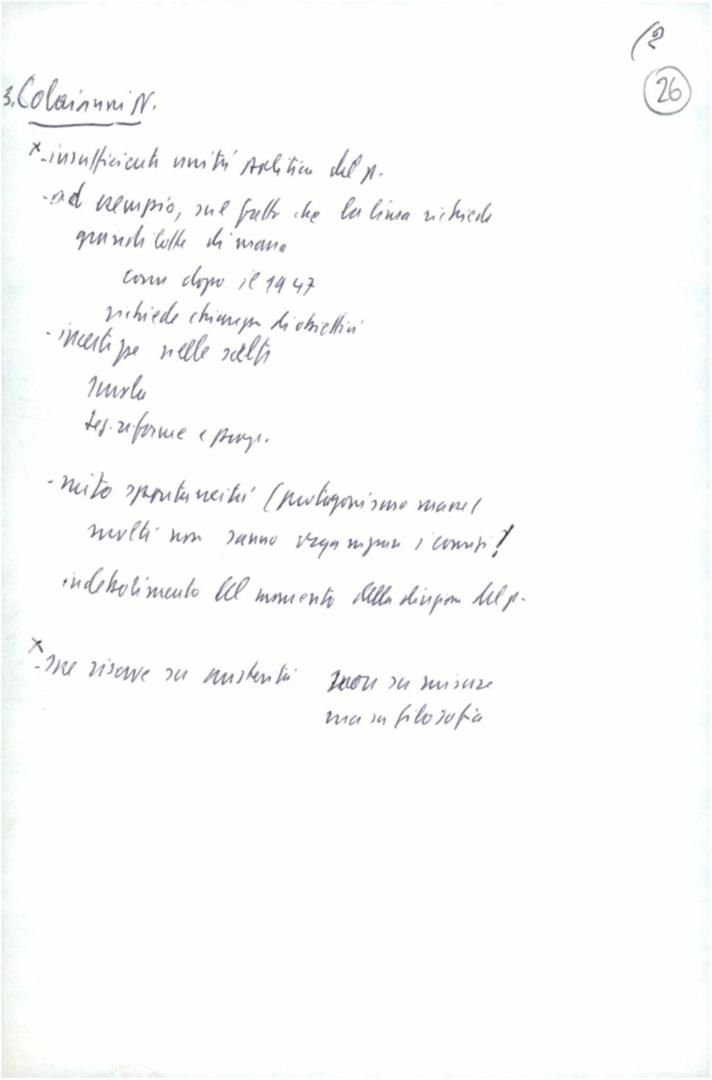 (2
26
3. Colaianni N.
x - insufficiente unità politica del p.
- ad esempio, sul fatto che la linea richiede
grandi lotte di massa
come dopo il 1947
richiede chiarezza di obiettivi
- incertezze nelle scelte
scuola
riforme e
- mito spontaneità (protagonismo masse(
molti non sanno organizzare i comizi!
indebolimento del momento della direzione del p.
x - sue riserve su austerità non su misure
ma su filosofia